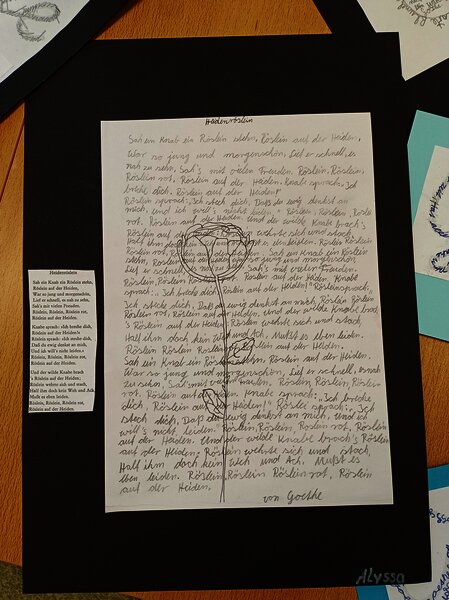 Heidenröslein
Sah ein Knab ein Röslein stehn, Röslein auf der Heiden,
War so jung und morgenschön, Lief er schnell, es
nah zu sehn, Sah's mit vielen Freuden. Röslein, Röslein,
Röslein rot, Röslein auf der Heiden. Knabe sprach: Ich
breche dich, Röslein auf der Heiden!
Röslein sprach: Ich steche dich, Daß du ewig denkst an
mich, und ich will's nicht leiden. Röslein, Röslein, Röslein
rot, Röslein auf der Heiden. Und der wilde Knabe brach
Röslein auf der Heiden; Röslein wehrte sich und stach,
Half ihm doch
Röslein auf der Heiden. Sah ein Knab ein Röslein
stehn, Röslein
Lief er schnell, Sah's mit vielen Freuden.
Röslein, Röslein, Röslein auf der Heiden. Knabe
sprach: Ich breche dich, Röslein auf der Heiden! Röslein sprach:
Ich steche dich, Daß du ewig denkst an mich, Röslein, Röslein,
Röslein rot, Röslein auf der Heiden. Und der wilde Knabe brach
's Röslein auf der Heiden; Röslein wehrte sich und stach,
Half ihm doch kein Weh und Ach, Mußt es eben leiden.
Röslein, Röslein, Röslein auf der Heiden.
Sah ein Knab ein Röslein stehn, Röslein auf der Heiden.
War so jung und morgenschön, Lief er schnell, es nah
zu sehn, Sah's mit vielen Freuden. Röslein, Röslein, Röslein
rot, Röslein auf der Heiden. Knabe sprach: Ich breche
dich, Röslein auf der Heiden! Röslein sprach: Ich
steche dich, Daß du ewig denkst an mich, Und ich
will's nicht leiden. Röslein, Röslein, Röslein rot, Röslein
auf der Heiden. Und der wilde Knabe brach's Röslein
auf der Heiden; Röslein wehrte sich und stach,
Half ihm doch kein Weh und Ach, Mußt es
eben leiden. Röslein, Röslein, Röslein rot, Röslein
auf der Heiden.
von Goethe
Heidenröslein
Sah ein Knab ein Röslein stehn,
Röslein auf der Heiden,
War so jung und morgenschön,
Lief er schnell, es nah zu sehn,
Sah's mit vielen Freuden.
Röslein, Röslein, Röslein rot,
Röslein auf der Heiden.
Knabe sprach: Ich breche dich,
Röslein auf der Heiden!
Röslein sprach: Ich steche dich,
Daß du ewig denkst an mich,
Und ich will's nicht leiden.
Röslein, Röslein, Röslein rot,
Röslein auf der Heiden.
Und der wilde Knabe brach
's Röslein auf der Heiden;
Röslein wehrte sich und stach,
Half ihm doch kein Weh und Ach,
Mußt es eben leiden.
Röslein, Röslein, Röslein rot,
Röslein auf der Heiden.
Alyssa